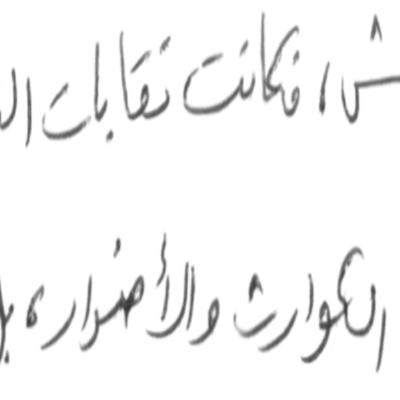 ش، فكانت نقابات ال
الكوارث والأضرار، بل